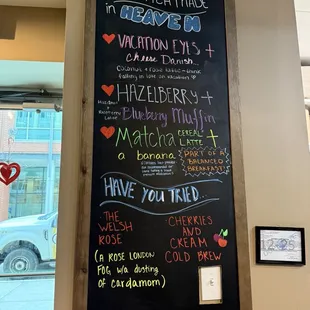 MADE
in HEAVEN
VACATION EYES +
Cheese Danish..
coconut + rose latte =
feeling
HAZELBERRY +
Hazelnut
Raspberry
Latte
Blueberry Muffin
Matcha CEREAL LATTE +
a banana
PART OF A
BALANCED
BREAKFAST!
HAVE YOU TRIED...
THE
WELSH
ROSE
(A ROSE LONDON
FOG w/a dusting
of cardamom)
CHERRIES
AND
CREAM
COLD BREW